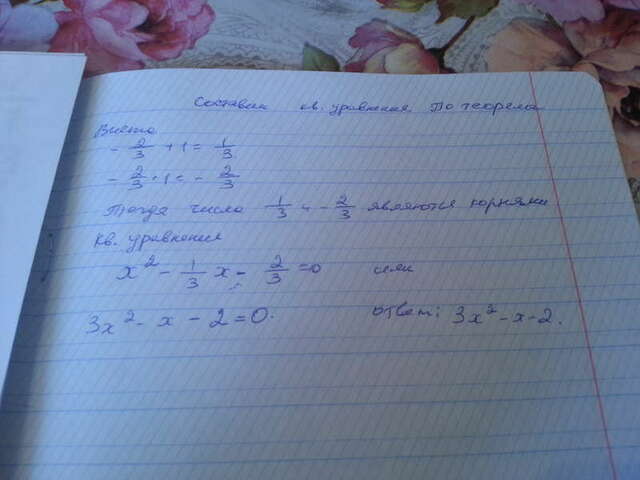 Составим кв. уравнение по теореме
Виета
- 2/3 + 1 = 1/3
- 2/3 · 1 = - 2/3
Тогда числа 1/3 и - 2/3 являются корнями
кв. уравнения
x² - 1/3 x - 2/3 = 0 или
3x² - x - 2 = 0. ответ: 3x² - x - 2.